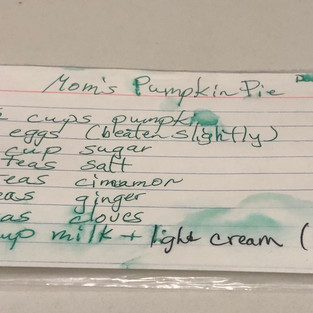 Mom's Pumpkin Pie
cups
eggs (beaten slightly)
cup sugar
teas salt
eas cinnamon
eas ginger
as cloves
up milk + light cream (